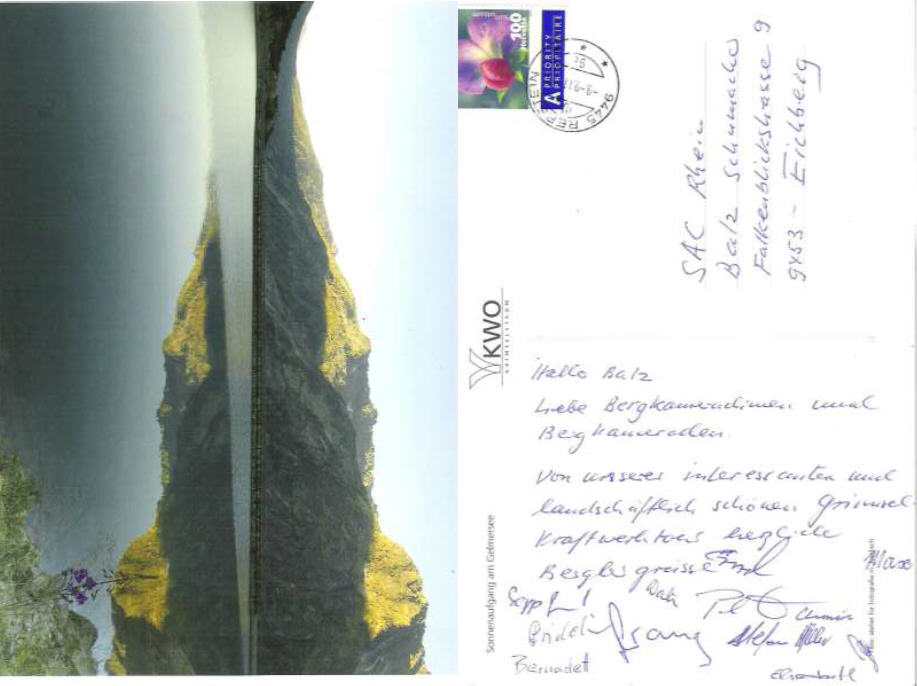 100
Helvetia
A PRIORITY
PRIORITAIRE
9445 REBSTEIN
SAC Rhein
Balz Schumacher
Falkenblickstrasse 9
9453 - Eichberg
KWO
GRIMSELSTROM
Hallo Balz
Liebe Bergkameradinnen und
Bergkameraden.
Von unserer interessanten und
landschaftlich schönen Grimsel-
Kraftwerktour herzliche
Bergler grüsse
Sepp
Peter
Stefan
Bernadett
Elisabeth
Sonnenaufgang am Gelmersee
atelier für Fotografie